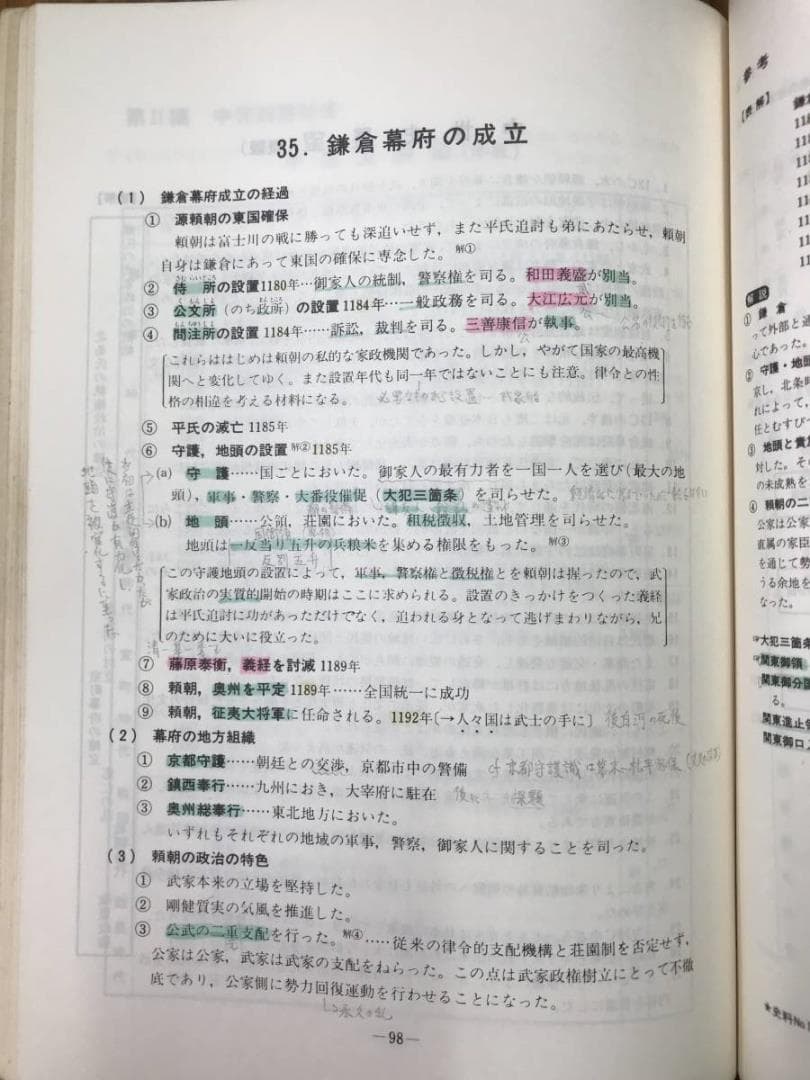 35. 鎌倉幕府の成立
(1) 鎌倉幕府成立の経過
① 源頼朝の東国確保
頼朝は富士川の戦に勝っても深追いせず，また平氏追討も弟にあたらせ，頼朝
自身は鎌倉にあって東国の確保に専念した。解①
② 侍所の設置1180年…御家人の統制，警察権を司る。和田義盛が別当。
③ 公文所（のち政所）の設置1184年…一般政務を司る。大江広元が別当。
④ 問注所の設置1184年……訴訟，裁判を司る。三善康信が執事。
これらははじめは頼朝の私的な家政機関であった。しかし，やがて国家の最高機
関へと変化してゆく。また設置年代も同一年ではないことにも注意。律令との性
格の相違を考える材料になる。
⑤ 平氏の滅亡1185年
⑥ 守護，地頭の設置 解②1185年
(a) 守護……国ごとにおいた。御家人の最有力者を一国一人を選び（最大の地
頭），軍事・警察・大番役催促（大犯三箇条）を司らせた。
(b) 地頭……公領，荘園においた。租税徴収，土地管理を司らせた。
地頭は一反当り五升の兵粮米を集める権限をもった。解③
反別五升
この守護地頭の設置によって，軍事，警察権と徴税権とを頼朝は握ったので，武
家政治の実質的開始の時期はここに求められる。設置のきっかけをつくった義経
は平氏追討に功があっただけでなく，追われる身となって逃げまわりながら，兄
のために大いに役立った。
⑦ 藤原泰衡，義経を討滅1189年
⑧ 頼朝，奥州を平定1189年……全国統一に成功
⑨ 頼朝，征夷大将軍に任命される。1192年〔→人々国は武士の手に〕
後白河の死後
(2) 幕府の地方組織
① 京都守護……朝廷との交渉，京都市中の警備
② 鎮西奉行……九州におき，大宰府に駐在
③ 奥州総奉行……東北地方においた。
いずれもそれぞれの地域の軍事，警察，御家人に関することを司った。
(3) 頼朝の政治の特色
① 武家本来の立場を堅持した。
② 剛健質実の気風を推進した。
③ 公武の二重支配を行った。解④……従来の律令的支配機構と荘園制を否定せず，
公家は公家，武家は武家の支配をねらった。この点は武家政権樹立にとって不徹
底であり，公家側に勢力回復運動を行わせることになった。
→承久の乱
—98—
参考
【表解】
解説
① 鎌倉
って外部と通
心であった。
② 守護・地頭
京し，北条時
れによって，
任とむすびつ
③ 地頭と貴
対した。そ
の未成熟を
④ 頼朝の二
公家は公家が
直属の家臣
を通じて勢
うる余地を
なった。
大犯三箇条
関東御領
関東御分国
る。
関東進止
関東御口
★史料No